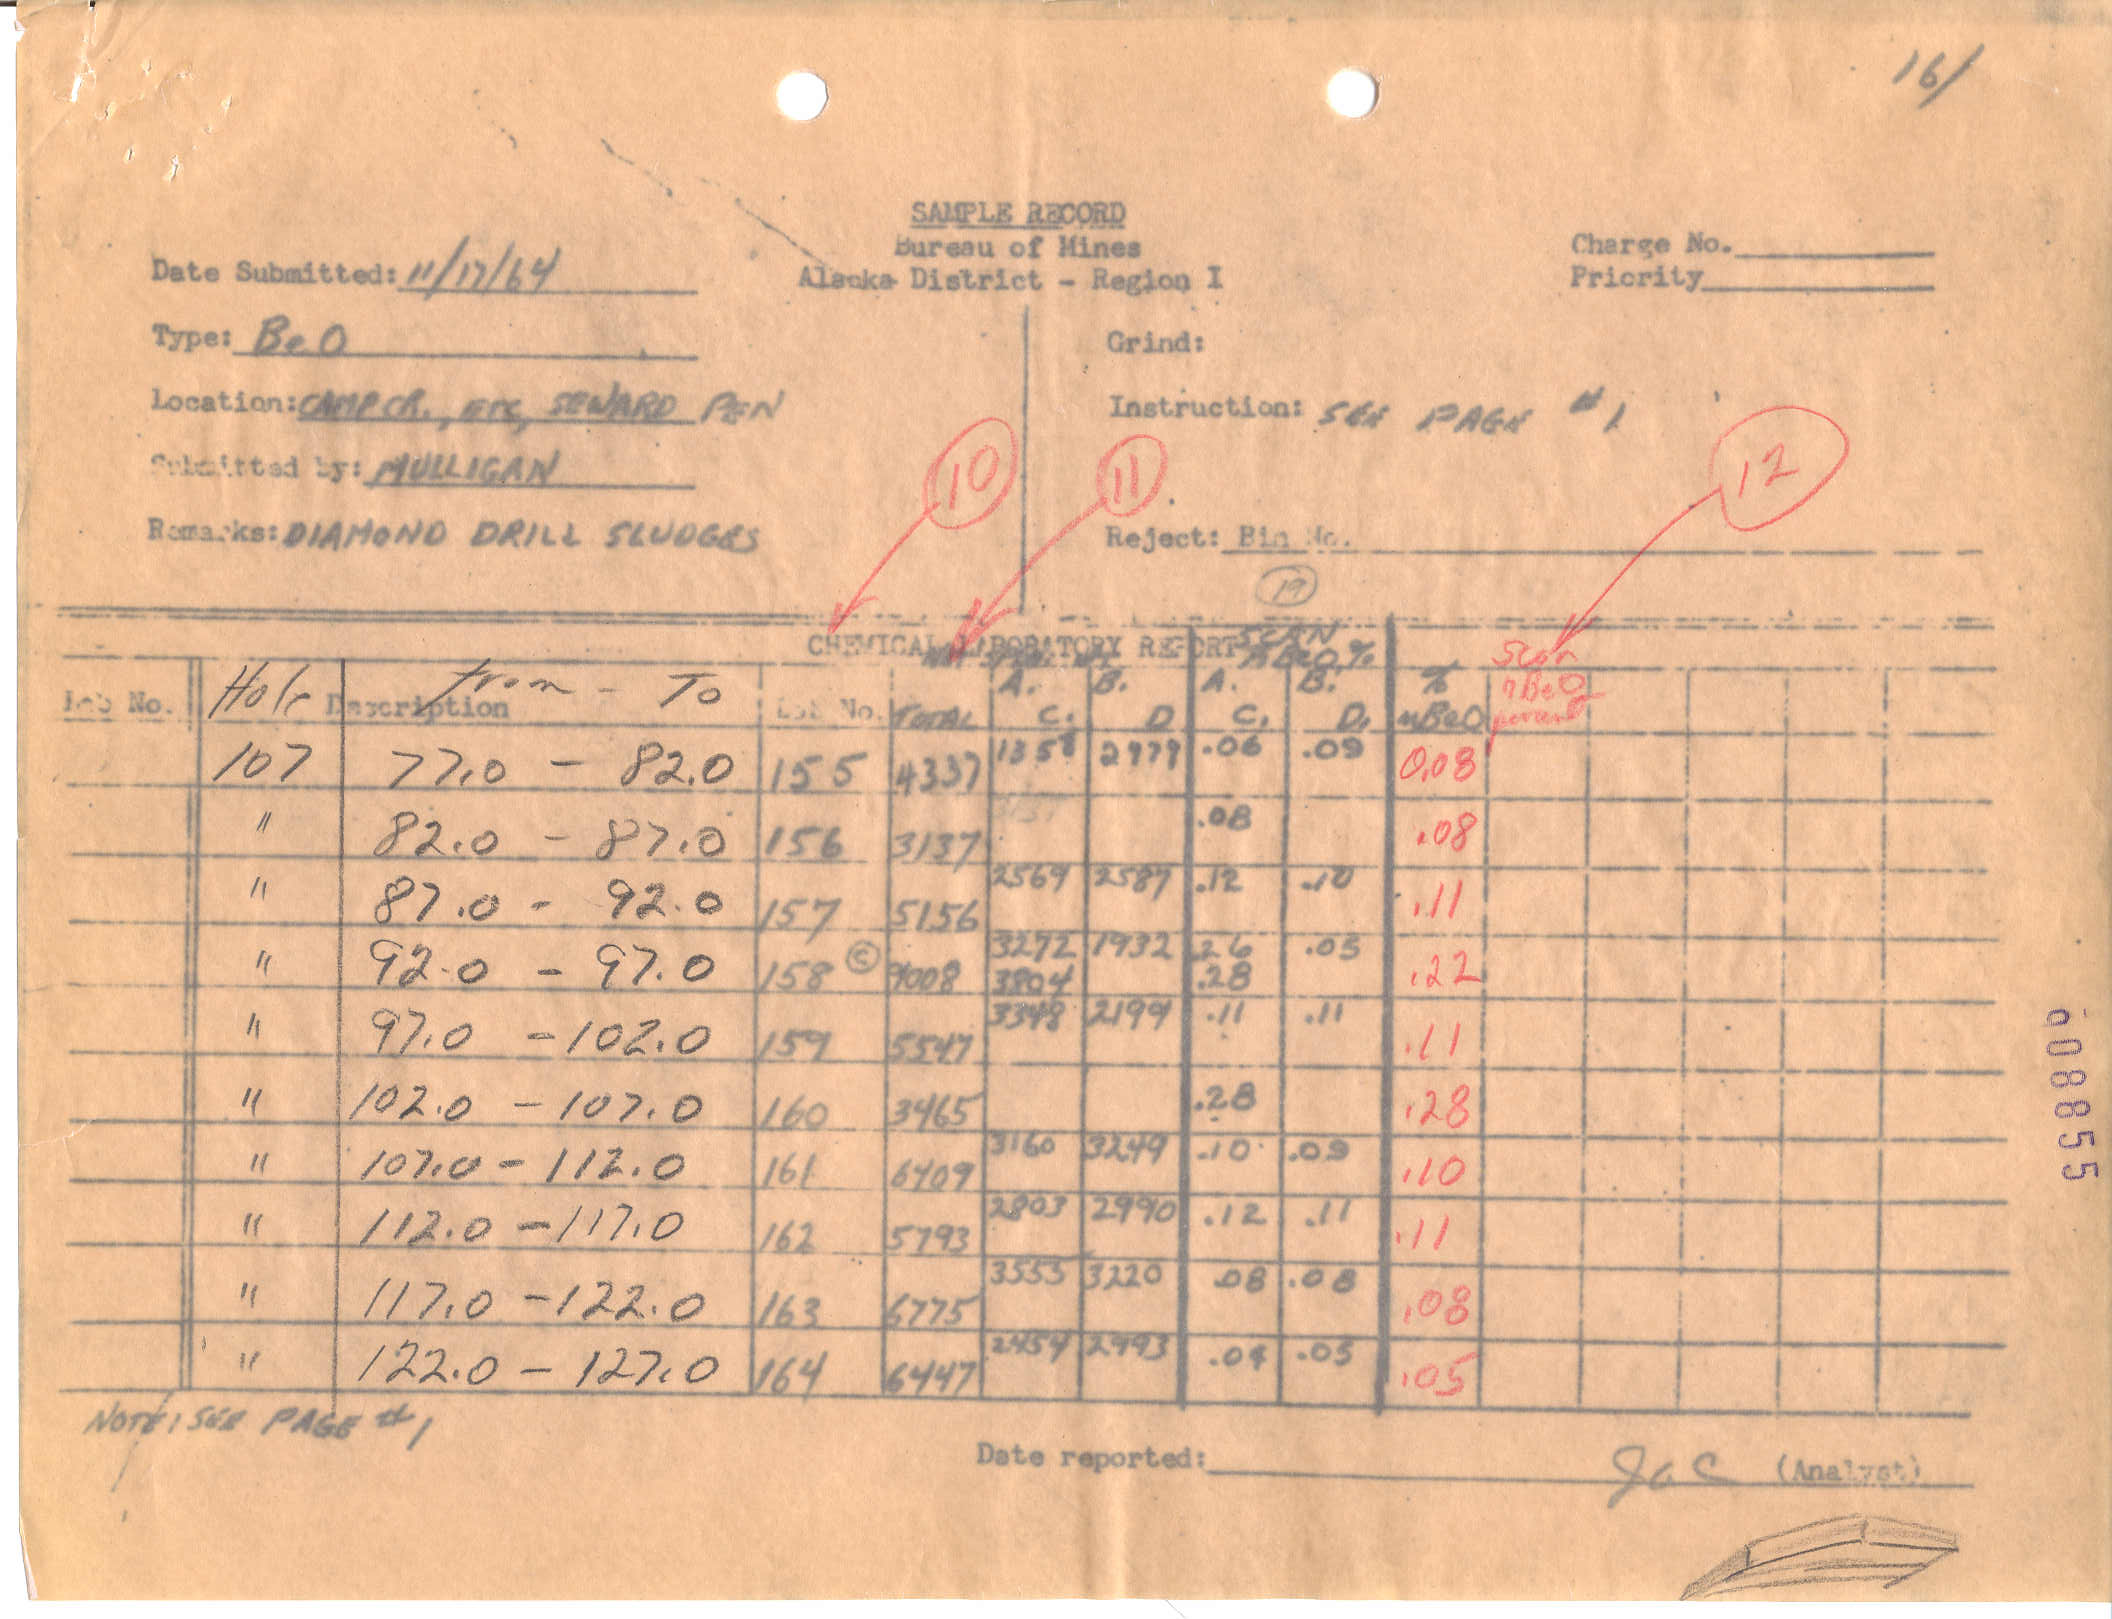 16/
SAMPLE RECORD
Bureau of Mines
Alaska District - Region I
Charge No.
Priority
Date Submitted: 11/17/64
Type: BeO
Grind:
Location: CAMP CR., ETC, SEWARD PEN
Instruction: SEE PAGE #1
Submitted by: MULLIGAN
10
11
12
Remarks: DIAMOND DRILL SLUDGES
Reject: Bin No.
19
CHEMICAL LABORATORY REPORT
SCAN
BeO %
Scan
Lab No. Hole Description from - To Lab No. TOTAL A. B. A. B. % nBeO
C. D C. D. nBeO percent
107 77.0 - 82.0 155 4337 1358 2979 .06 .09 0.08
" 82.0 - 87.0 156 3137 .08 .08
" 87.0 - 92.0 157 5156 2569 2587 .12 .10 .11
" 92.0 - 97.0 158 © 9008 3272 1932 .26 .05 .22
3804 .28
" 97.0 - 102.0 159 5547 3348 2199 .11 .11 .11
" 102.0 - 107.0 160 3465 .28 .28
" 107.0 - 112.0 161 6409 3160 3249 .10 .09 .10
" 112.0 - 117.0 162 5793 2803 2990 .12 .11 .11
" 117.0 - 122.0 163 6775 3555 3220 .08 .08 .08
" 122.0 - 127.0 164 6447 2454 2993 .04 .05 .05
NOTE: SEE PAGE #1
Date reported:
JAC (Analyst)
608855